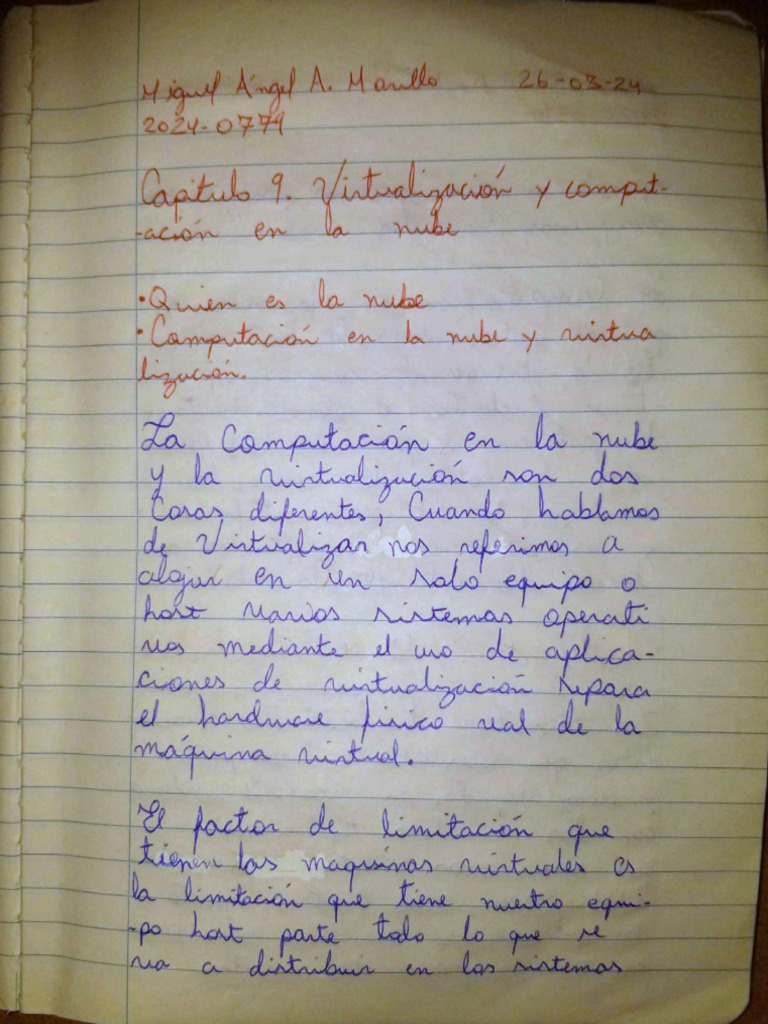 Miguel Ángel A. Morillo 26-03-24
2024-0779
Capitulo 9. Virtualización y comput-
-ación en la nube
• Quien es la nube
• Computación en la nube y virtua
lización.
La Computación en la nube
y la virtualización son dos
cosas diferentes, Cuando hablamos
de Virtualizar nos referimos a
alojar en un solo equipo o
host varios sistemas operati
vos mediante el uso de aplica-
ciones de virtualización separa
el hardware fisico real de la
máquina virtual.
El factor de limitación que
tienen las maquinas virtuales es
la limitación que tiene nuestro equi-
-po host parte todo lo que se
va a distribuir en los sistemas